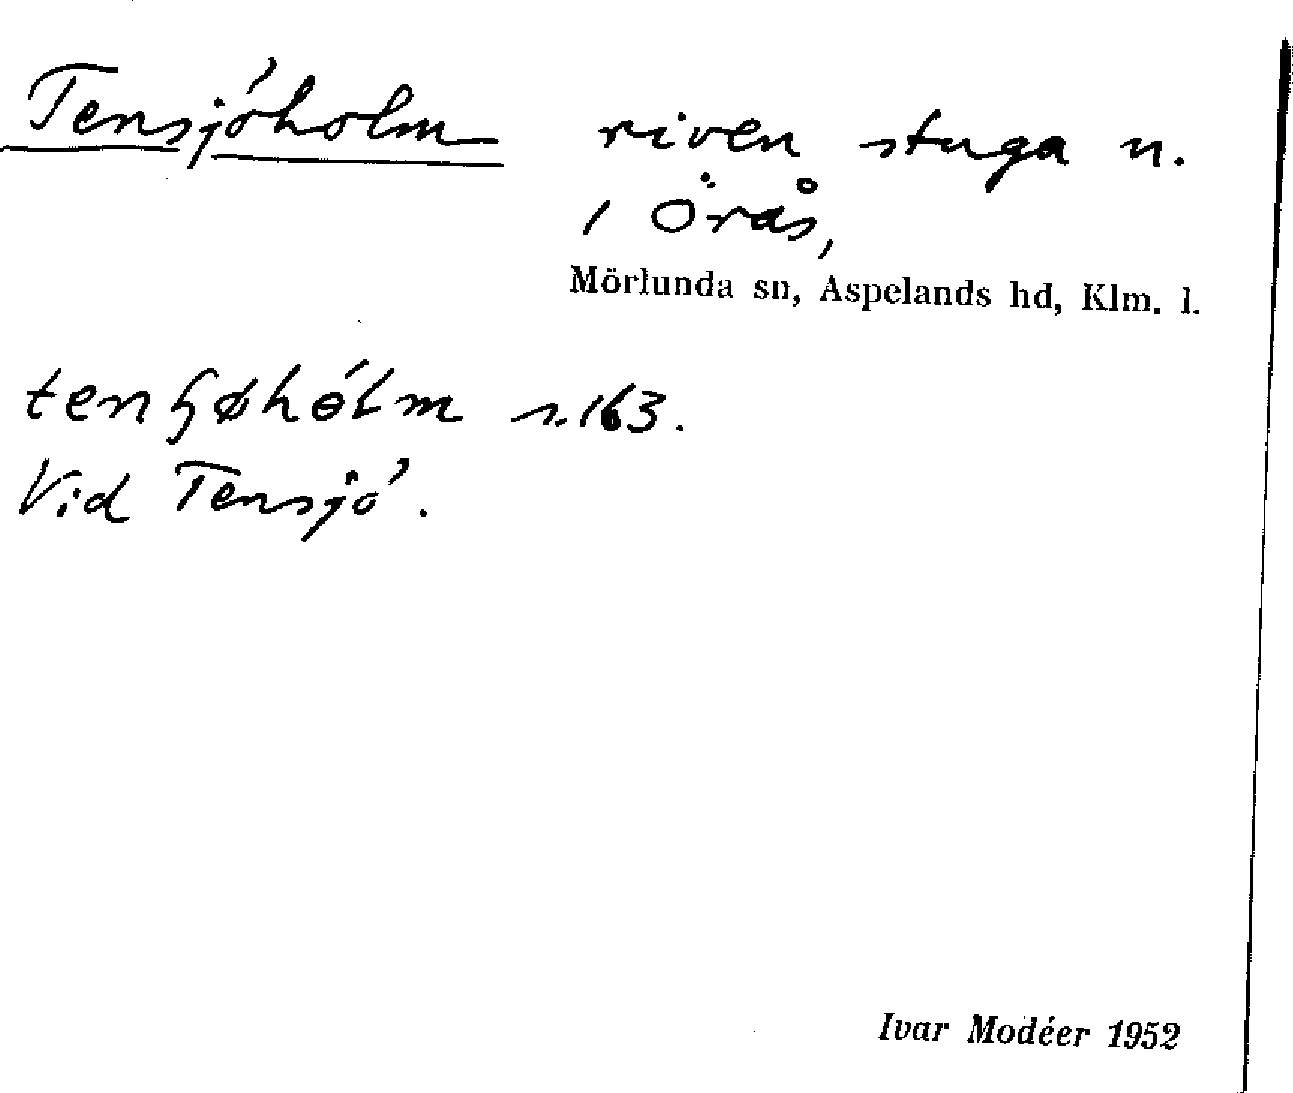 Tensjöholm riven stuga n.
i Örås,
Mörlunda sn, Aspelands hd, Klm. l.
tenɧøhólm s.163.
Vid Tensjö.
Ivar Modéer 1952